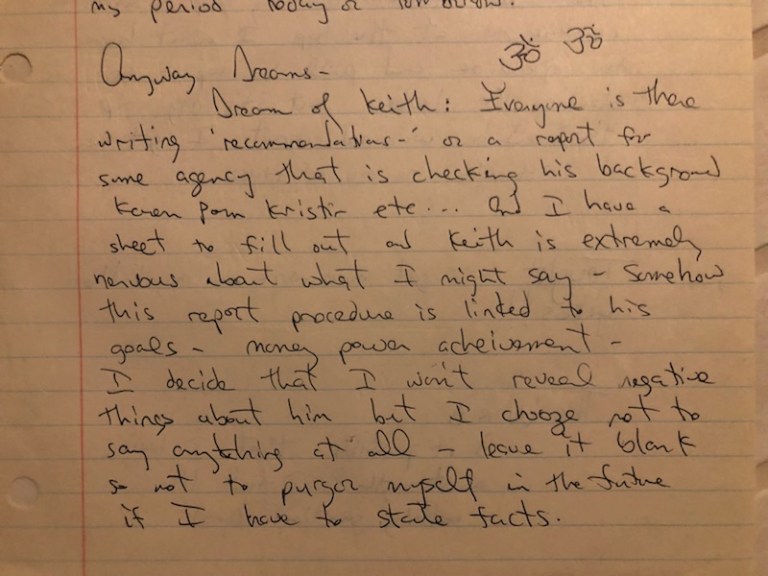 my period today or tomorrow.
Anyway Dreams- ॐ ॐ
Dream of Keith: Everyone is there
writing 'recommendations-' or a report for
some agency that is checking his background
Karen Pam Kristin etc... and I have a
sheet to fill out and Keith is extremely
nervous about what I might say - Somehow
this report procedure is linked to his
goals - money power acheivement -
I decide that I won't reveal negative
things about him but I chooze not to
say anything at all - leave it blank
so not to purger myself in the future
if I have to state facts.